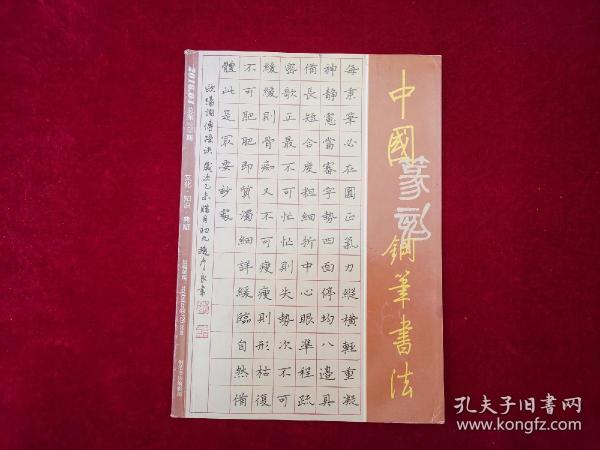 中國篆刻
鋼筆書法
每秉筆必在圓正氣力縱橫輕重凝
神靜慮當審字勢四面停均八邊具
備長短合度粗細折中心眼準程疏
密欹正最不可忙忙則失勢次不可
緩緩則骨痴又不可瘦瘦則形枯復
不可肥肥即質濁細詳緩臨自然備
體此是冣要妙處
歐陽詢傳授訣 歲次乙未臘月初九
2016.01
文化·知识·典藏
孔夫子旧书网
www.kongfz.com